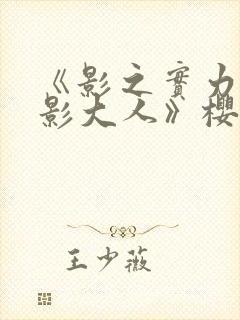 《影之實力
影大人》櫻
王少薇